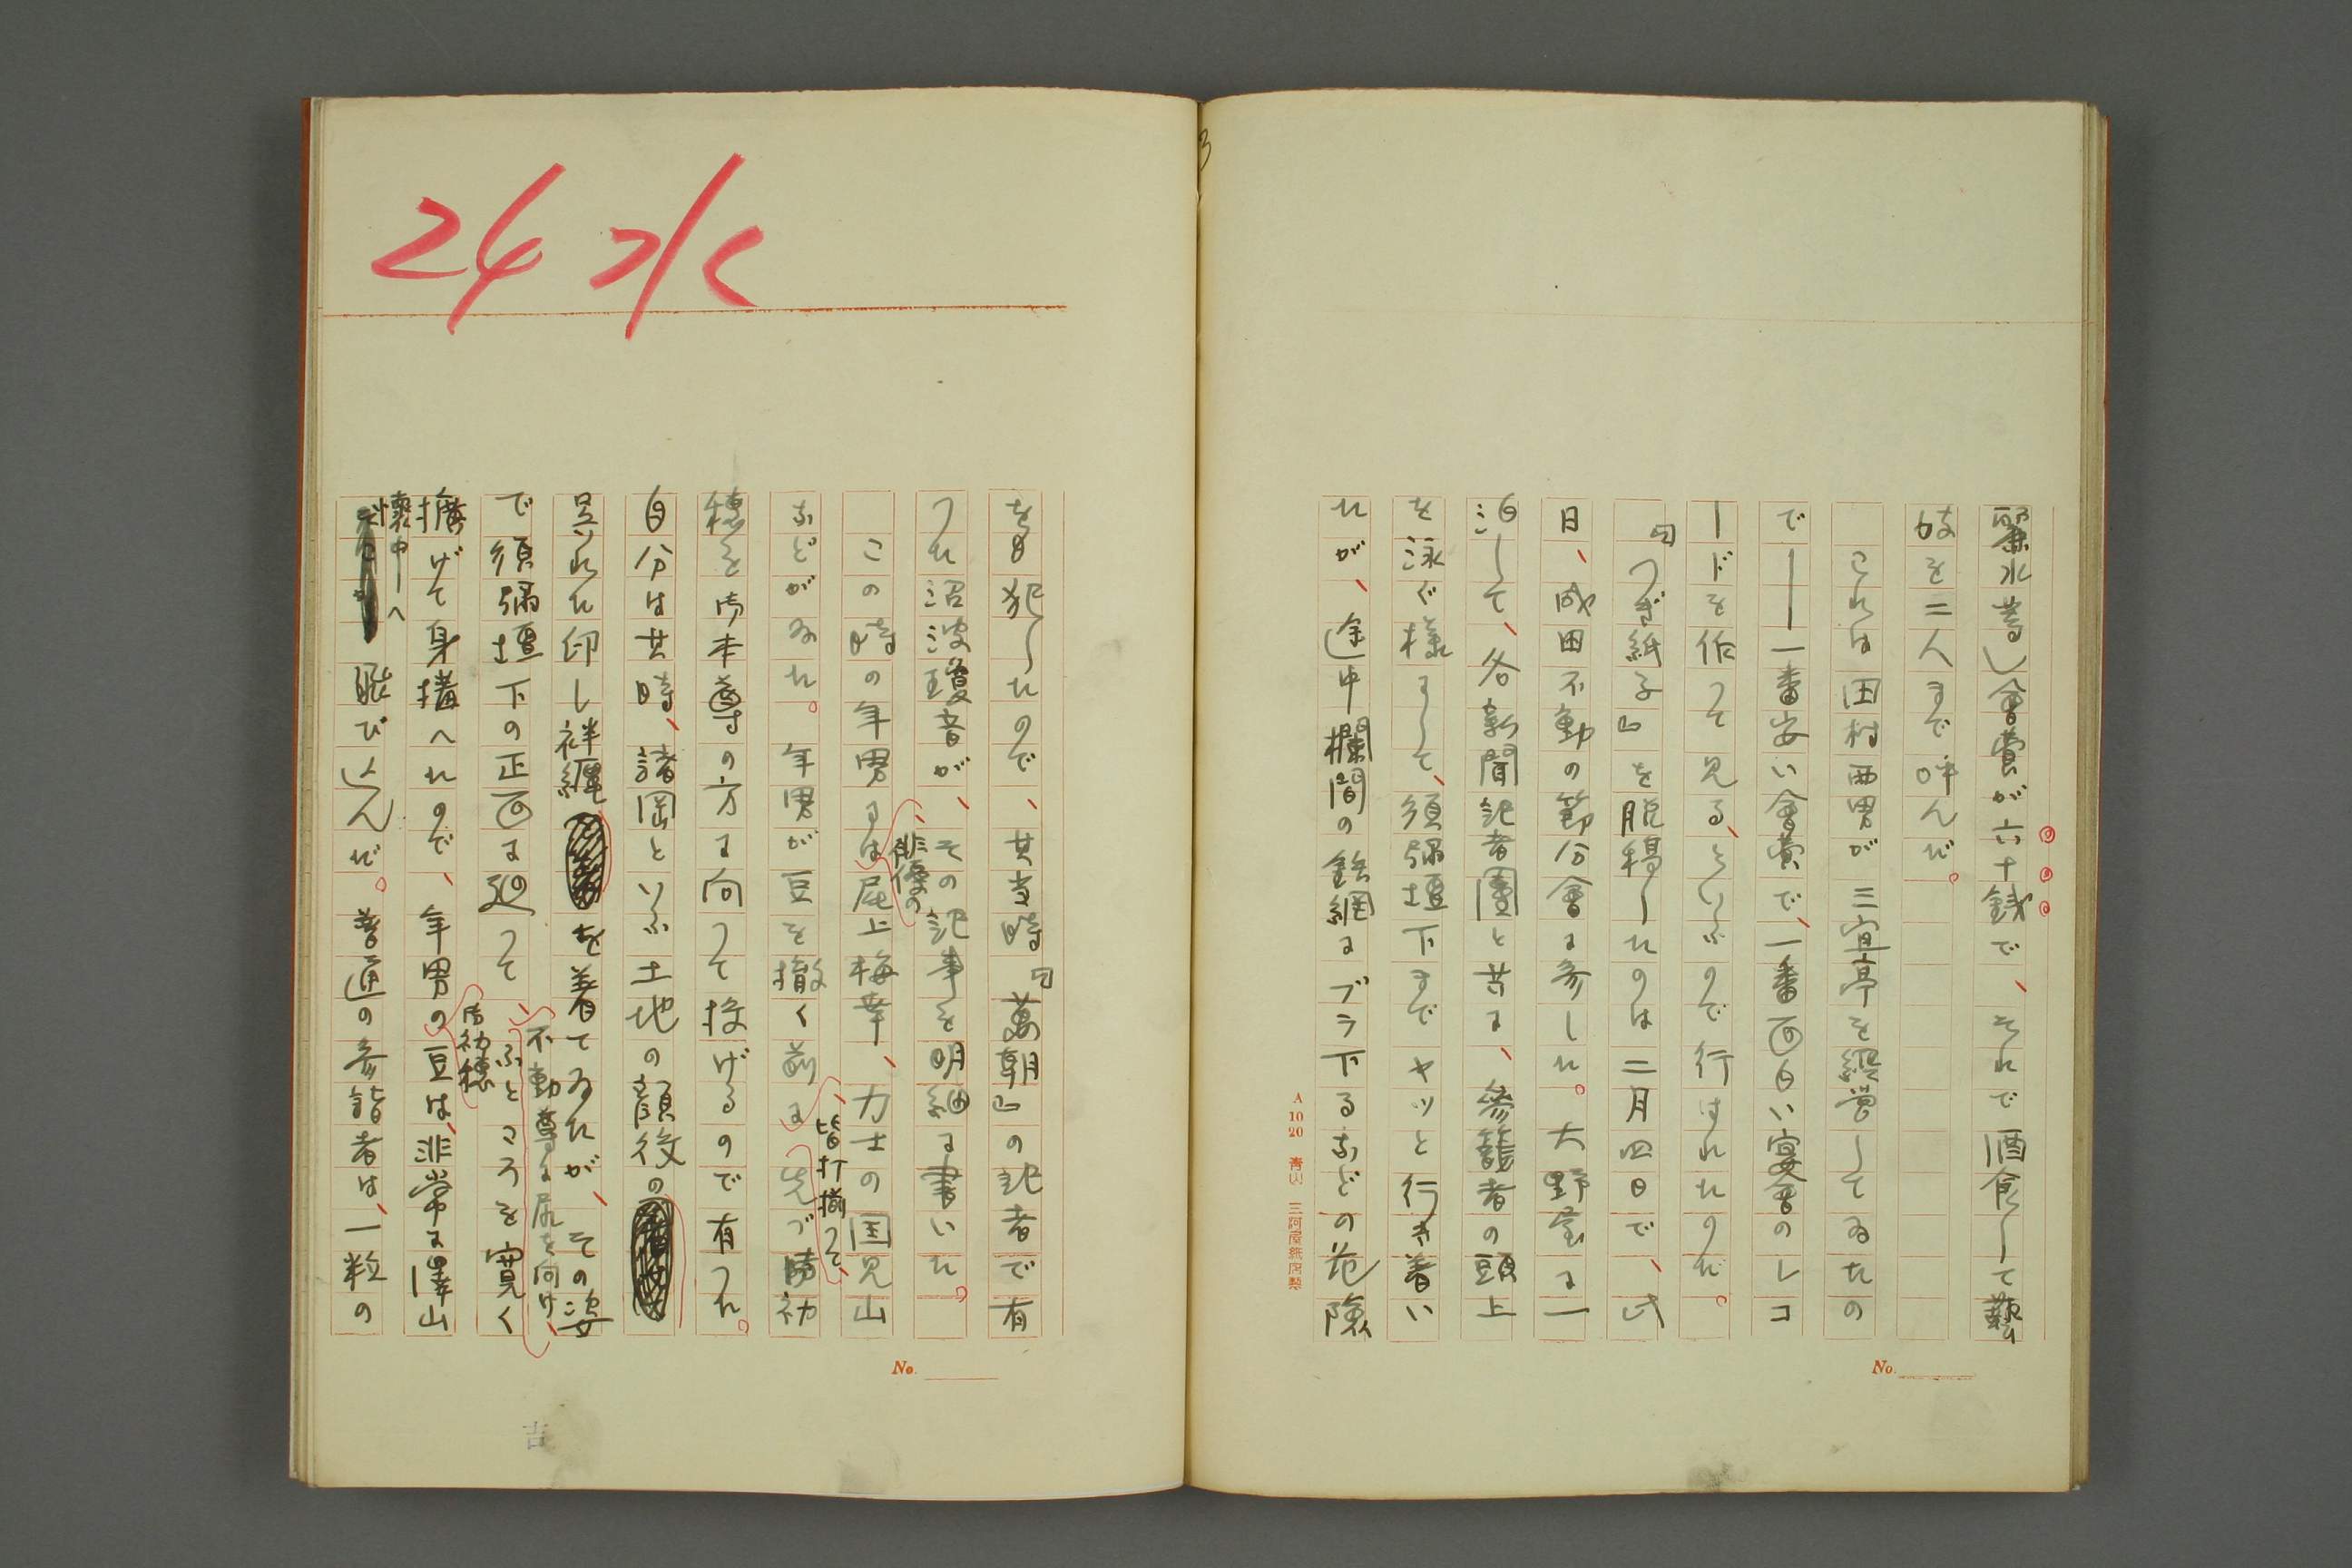 麗水等)會費が六十銭で、それで酒食して藝
妓を二人まで呼んだ。
これは田村西男が三宜亭を經営してゐたの
で――一番安い會費で、一番面白い宴會のレコ
ードを作つて見る、といふので行はれたのだ。
『つぎ紙子』を脱稿したのは二月四日で、此
日、成田不動の節分會に参した。大野屋に一
泊して、各新聞記者團と共に、參籠者の頭上
を泳ぐ様にして、須弥壇下まで ヤツと行き着い
たが、途中欄間の鉄網にブラ下るなどの危険
A 10 20 青山 三河屋紙店製
No.
3
24 水
を犯したので、其当時『萬朝』の記者で有
つた沼波瓊音が、その記事を明細に書いた。
この時の年男には、俳優の尾上梅幸、力士の国見山
などがゐた。年男が豆を撤く前に、皆打揃つて、先づ勝初
穂を御本尊の方に向つて投げるので有つた。
自分は其時、諸岡といふ土地の顔役の
呉れた印し袢纏を着てゐたが、その姿
で須弥壇下の正面に廻つて、不動尊に尻を向け、ふところを寛く
擴げて身構へたので、年男の御初穂豆は、非常に澤山
懐中へ飛び込んだ。普通の参詣者は、一粒の
No.
吉